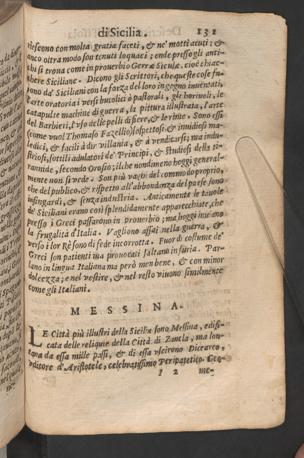 di Sicilia. 131
riescono con molta gratia faceti, & ne' motti acuti; &
anco oltra modo son tenuti loquaci: onde presso gli anti-
chi si troua come in prouerbio Gerræ Siculæ, cioè chiac-
chere Siciliane. Dicono gli Scrittori, che queste cose fu-
rono da' Siciliani con la forza del loro ingegno inuentati,
l'arte oratoria i versi bucolici ò pastorali, gli horiuoli, le
catapulte machine di guerra, la pittura illustrata, l'arte
del Barbieri, l'vso delle pelli di fiere, & le rime. Sono essi
(come vuol Thomaso Fazello) sospettosi, & inuidiosi ma-
ledici, & facili à dir villania, & à vendicarsi; ma indu-
striosi, sottili adulatori de' Principi, & studiosi della ti-
rannide, secondo Orosio; ilche nondimeno hoggi general-
mente non si vede. Son più vaghi del commodo proprio,
che del publico, & rispetto all'abbondanza del paese sono
infingardi, & senza industria. Anticamente le tauole
de' Siciliani erano così splendidamente apparecchiate, che
presso i Greci passarono in prouerbio; ma hoggi imitano
la frugalità d'Italia. Vagliono assai nella guerra, &
verso i lor Rè sono di fede incorrotta. Fuor di costume de'
Greci son patienti ma prouocati saltano in furia. Par-
lano in lingua Italiana ma però men bene, & con minor
dolcezza; e nel vestire, & nel resto viuono similmente
come gli Italiani.
MESSINA.
LE Città più illustri della Sicilia sono Messina, edifi-
cata delle reliquie della Città di Zancla, ma lon-
tana da essa mille passi, & di essa vscirono Dicearco,
vditore d'Aristotele, celebratissimo Peripatetico
I 2 me-